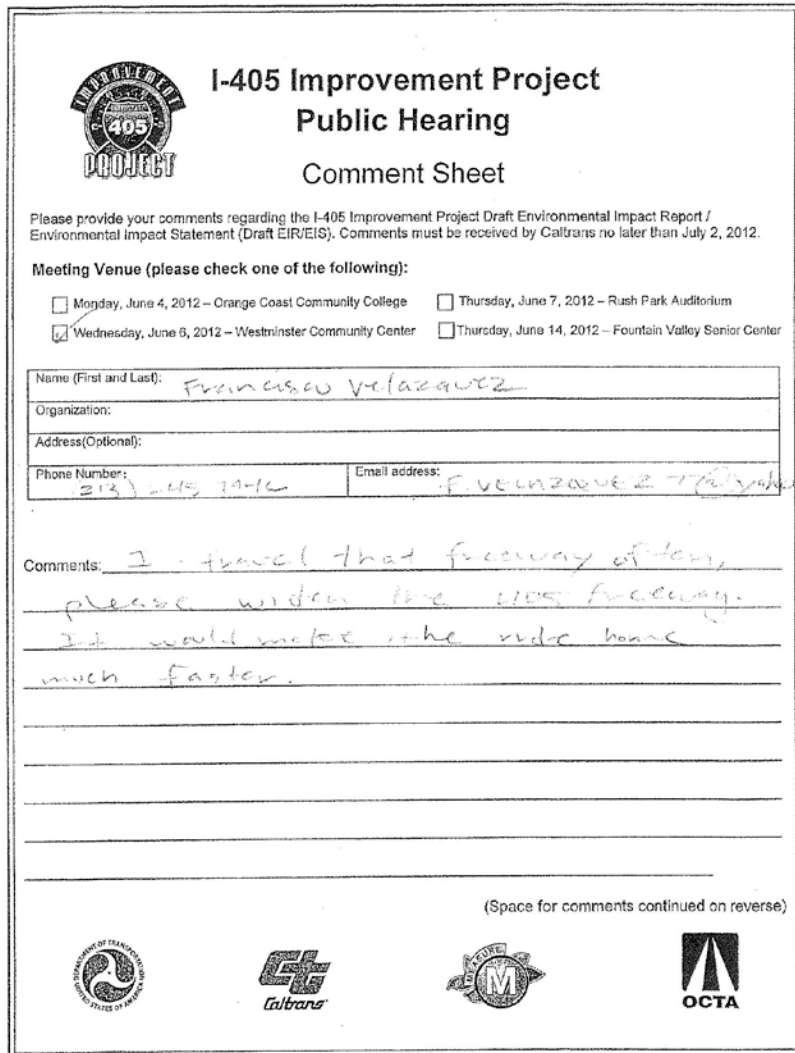 IMPROVEMENT
405
PROJECT
I-405 Improvement Project
Public Hearing
Comment Sheet
Please provide your comments regarding the I-405 Improvement Project Draft Environmental Impact Report /
Environmental Impact Statement (Draft EIR/EIS). Comments must be received by Caltrans no later than July 2, 2012.
Meeting Venue (please check one of the following):
Monday, June 4, 2012 – Orange Coast Community College
Thursday, June 7, 2012 – Rush Park Auditorium
Wednesday, June 6, 2012 – Westminster Community Center
Thursday, June 14, 2012 – Fountain Valley Senior Center
Name (First and Last): Francisco Velazquez
Organization:
Address(Optional):
Phone Number: (213)
Email address:
Comments: I travel that freeway often,
please widen the 405 freeway.
It would make the ride home
much faster.
(Space for comments continued on reverse)
DEPARTMENT OF TRANSPORTATION
UNITED STATES OF AMERICA
Caltrans
MEASURE
M
OCTA